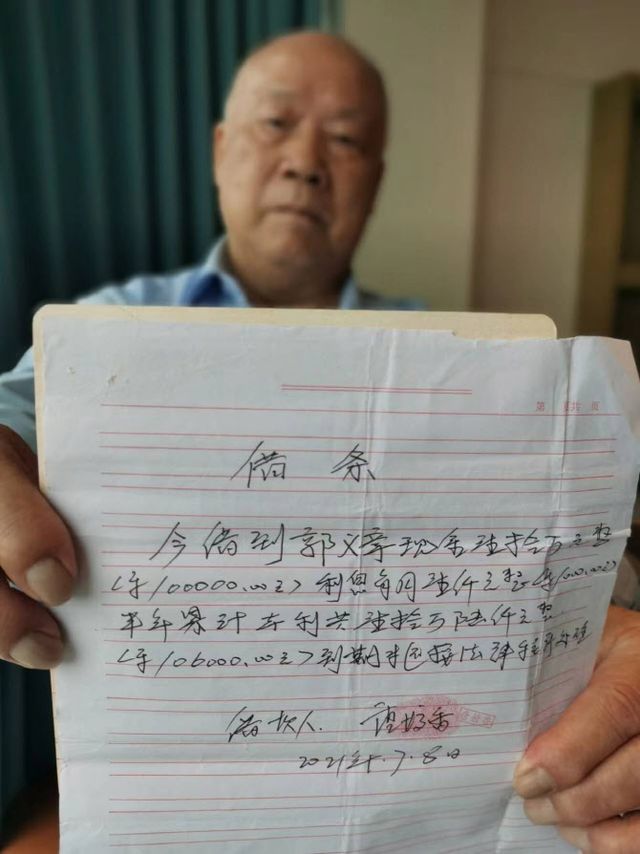 第 页共 页
借 条
今借到郭义章现金壹拾万元整
(¥100000.00元)利息每月壹仟元整(¥1000.00元)
半年累计本利共壹拾万陆仟元整
(¥106000.00元)到期不还按法律程序办理
借款人
2021年.7.8日